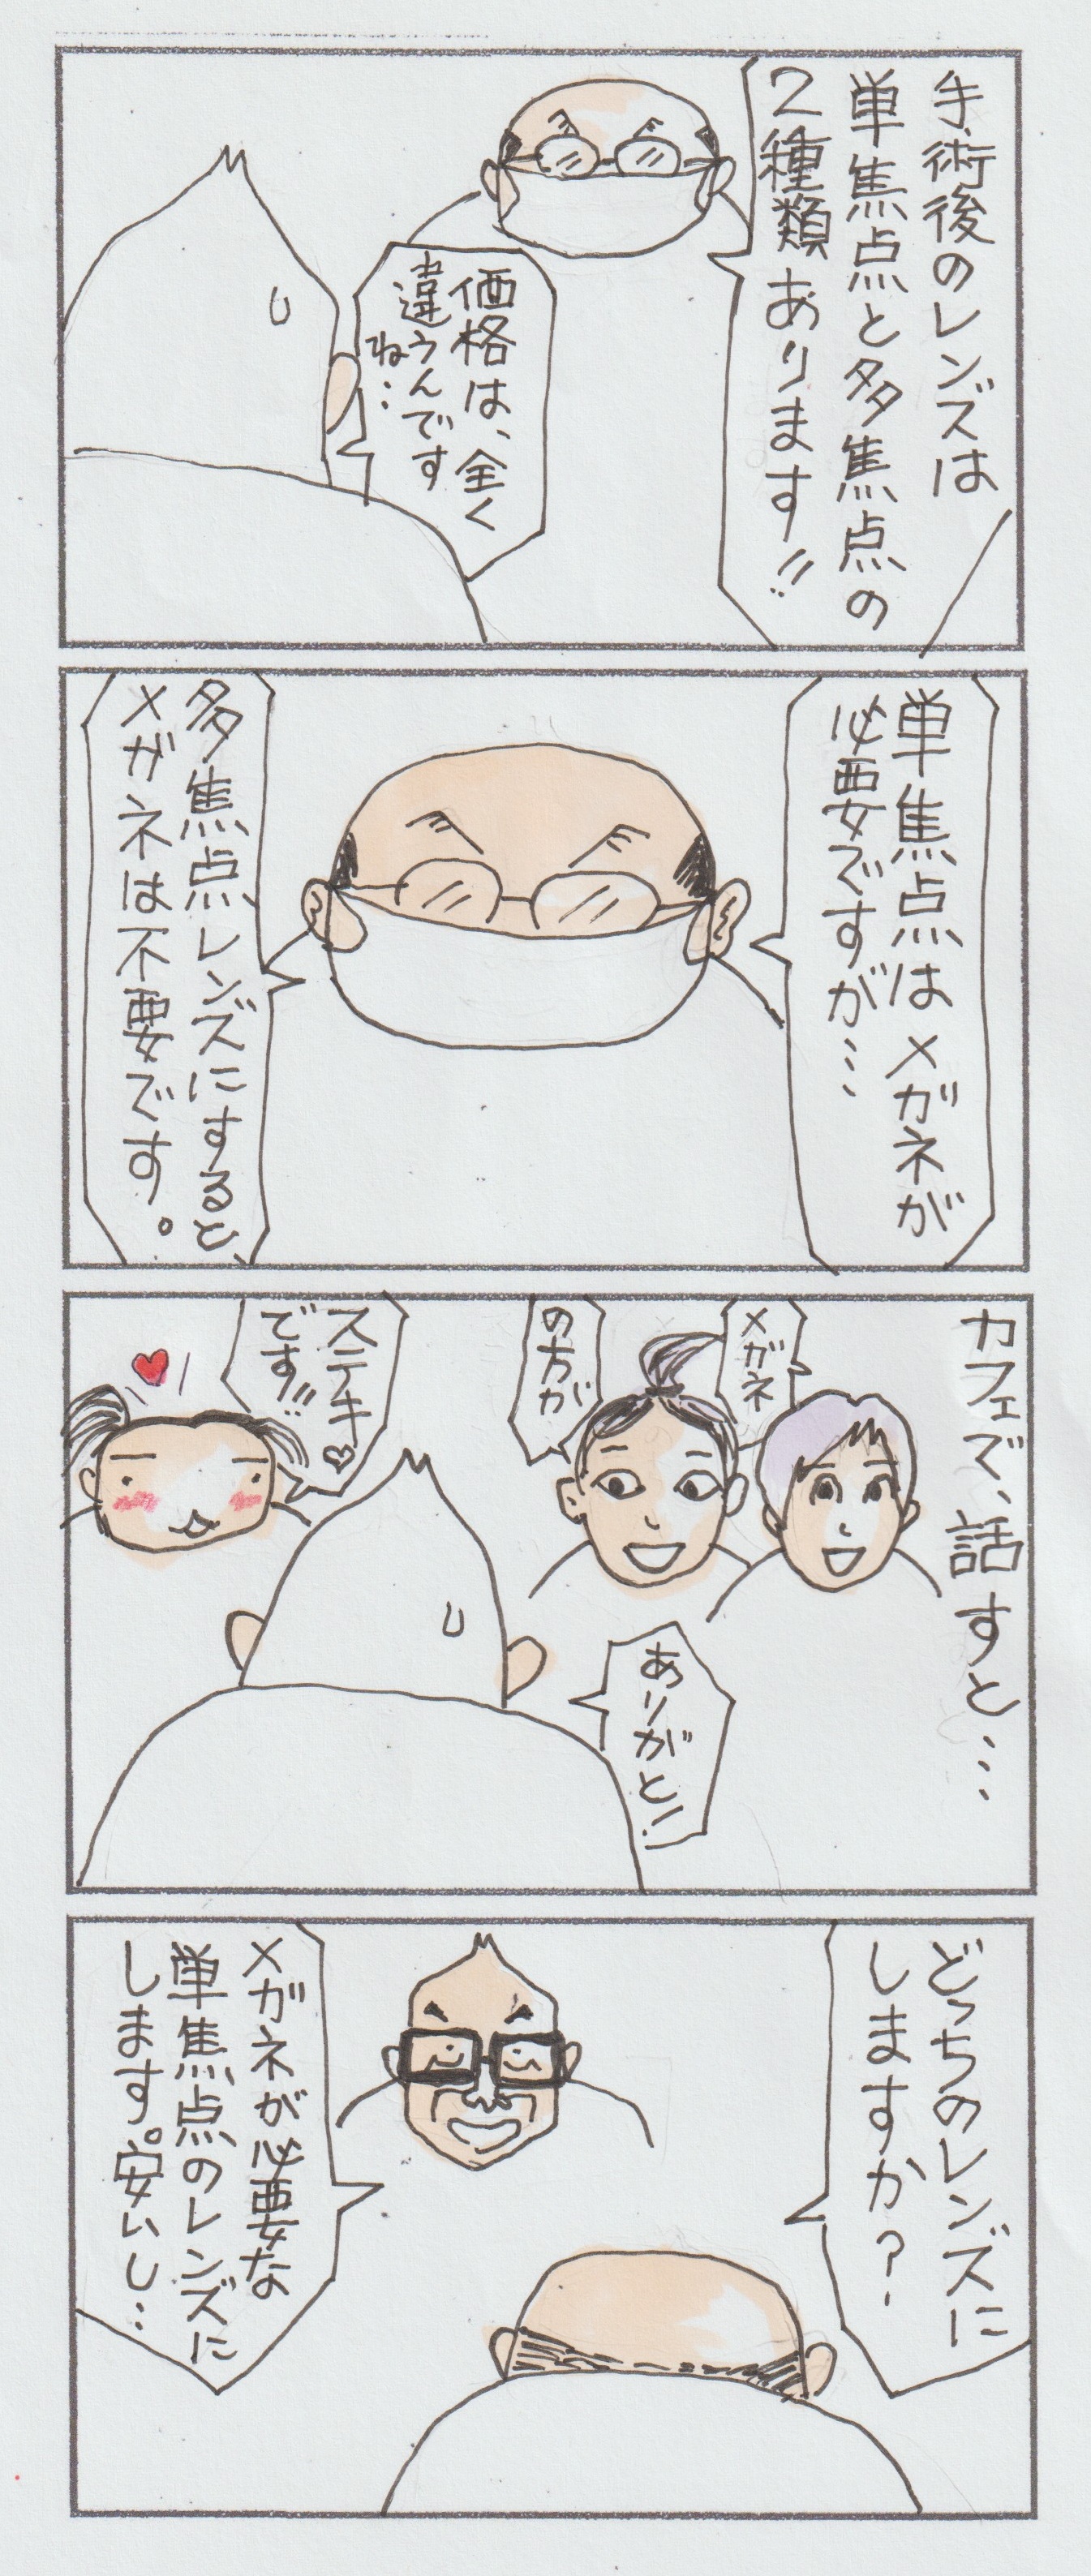 手術後のレンズは
単焦点と多焦点の
2種類あります!!
価格は、全く
違うんです
ね…
単焦点はメガネが
必要ですが…
多焦点レンズにすると、
メガネは不要です。
カフェで、話すと…
メガネ
の方が
ステキ♡
です!!
ありがと!
どっちのレンズに
しますか?
メガネが必要な
単焦点のレンズに
します。安いし…